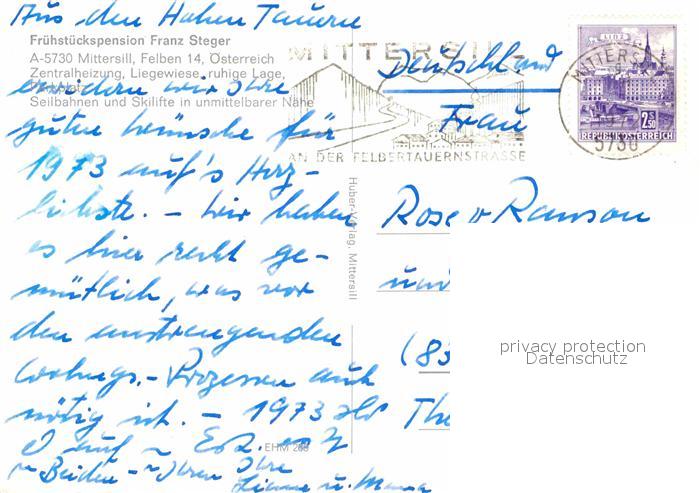 Aus den Hohen Tauern
Frühstückspension Franz Steger
A-5730 Mittersill, Felben 14, Österreich
Zentralheizung, Liegewiese, ruhige Lage,
Seilbahnen und Skilifte in unmittelbarer Nähe
erwidern wir Ihre
guten Wünsche für
1973 auf's Herz-
lichste. - Wir haben
es hier recht ge-
mütlich, was vor
den anstrengenden
Prozessen auch
nötig ist. - 1973
auf
Beiden - Ihre
Liane u.
MITTERSILL
AN DER FELBERTAUERNSTRASSE
LINZ
2.50
REPUBLIK ÖSTERREICH
MITTERSILL
5730
Deutschland
Frau
Rose v Ranson
und
(83
Th
Huber-Verlag, Mittersill
EHM 268
privacy protection
Datenschutz